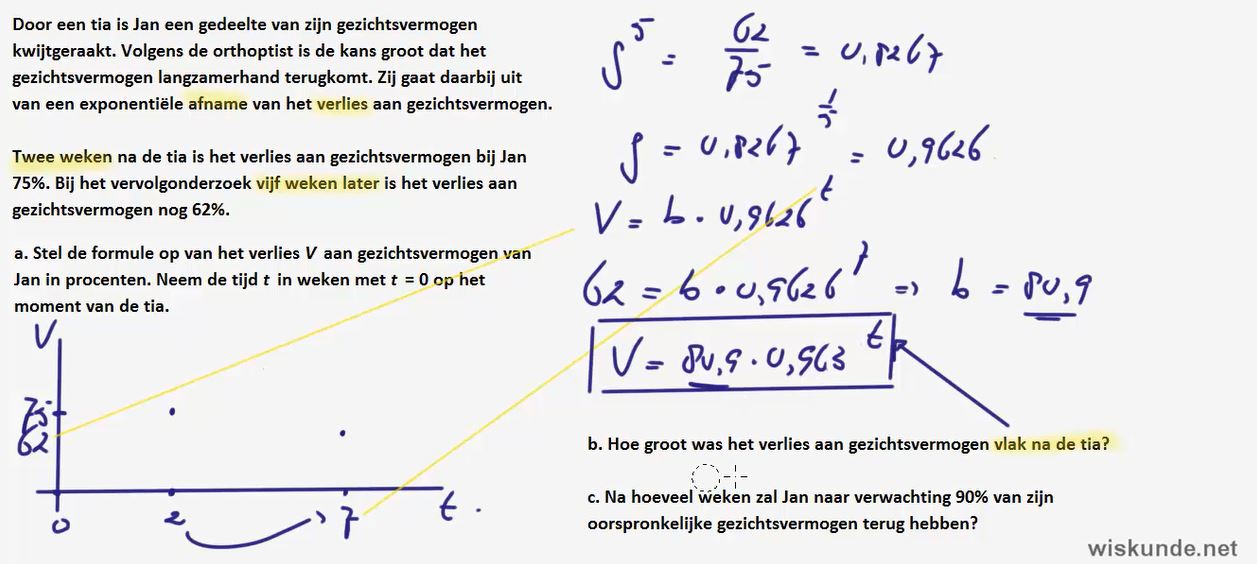 Door een tia is Jan een gedeelte van zijn gezichtsvermogen
kwijtgeraakt. Volgens de orthoptist is de kans groot dat het
gezichtsvermogen langzamerhand terugkomt. Zij gaat daarbij uit
van een exponentiële afname van het verlies aan gezichtsvermogen.
Twee weken na de tia is het verlies aan gezichtsvermogen bij Jan
75%. Bij het vervolgonderzoek vijf weken later is het verlies aan
gezichtsvermogen nog 62%.
a. Stel de formule op van het verlies V aan gezichtsvermogen van
Jan in procenten. Neem de tijd t in weken met t = 0 op het
moment van de tia.
V
75
62
0 2 7 t
g^5 = 62/75 = 0,8267
g = 0,8267^(1/5) = 0,9626
V = b · 0,9626^t
62 = b · 0,9626^7 => b = 80,9
V = 80,9 · 0,963^t
b. Hoe groot was het verlies aan gezichtsvermogen vlak na de tia?
c. Na hoeveel weken zal Jan naar verwachting 90% van zijn
oorspronkelijke gezichtsvermogen terug hebben?
wiskunde.net